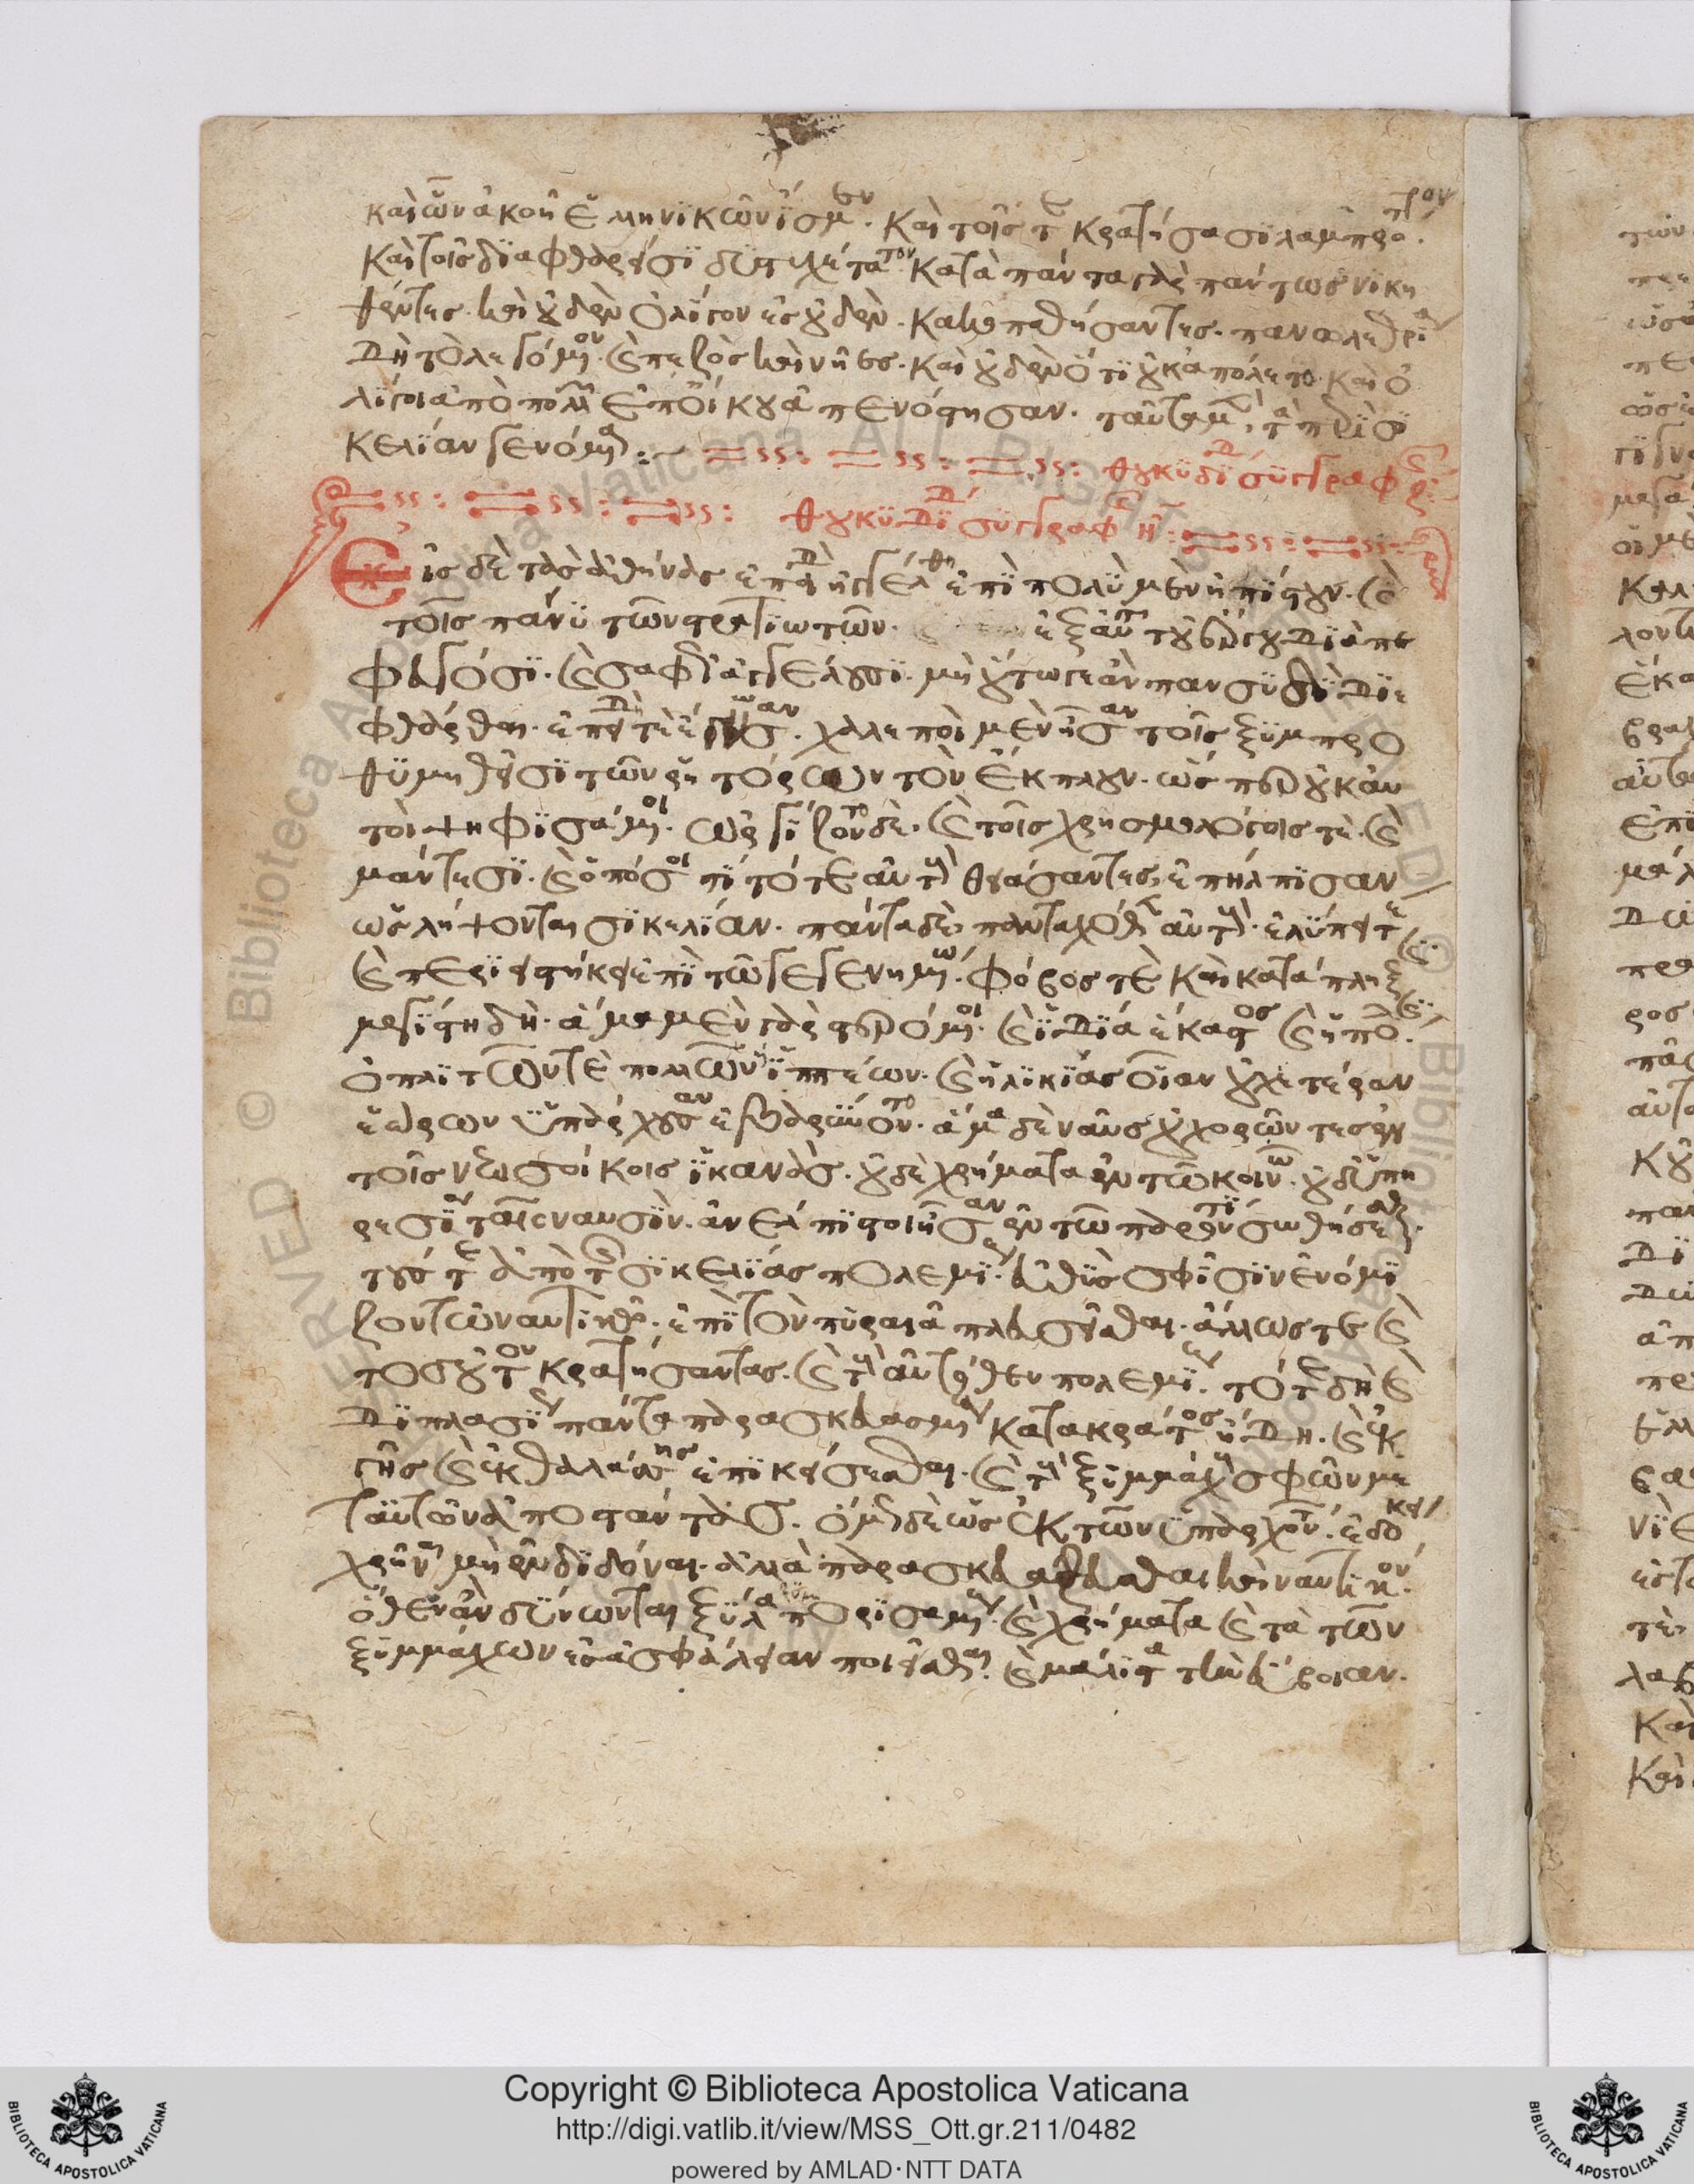 καὶ ὧν ἀκοῆ ἑλληνικῶν ἴσμεν. καὶ τοῖς τε κρατήσασι λαμπρότατον.
καὶ τοῖς διαφθαρεῖσι δυστυχέστατον. κατὰ πάντα γὰρ πάντως νικη
θέντες. καὶ οὐδὲν ὀλίγον ἐς οὐδὲν. κακοπαθήσαντες. πανωλεθρία
δὴ τὸ λεγόμενον. καὶ πεζὸς καὶ νῆες. καὶ οὐδὲν ὅτι οὐκ ἀπόλετο. καὶ ὀ
λίγοι ἀπὸ πολλῶν ἐπ' οἴκου ἀπενόστησαν. ταῦτα μὲν τὰ περὶ σι
κελίαν γενόμενα:~ θουκυδίδου συγγραφῆς
θουκυδίδου συγγραφῆς η:
Εἰς δὲ τὰς ἀθήνας ἐπειδὴ ἠγγέλθη ἐπὶ πολὺ μὲν ἠπίστουν. καὶ
τοῖς πάνυ τῶν στρατιωτῶν. ἐξ αὐτοῦ τοῦ ἔργου διαπε
φευγόσι. καὶ σαφῶς ἀγγέλλουσι. μὴ οὕτως γε ἂν πανσυδὶ διε
φθάρθαι. ἐπειδὴ τὲ ἔγνωσαν. χαλεποὶ μὲν ἦσαν τοῖς ξυμπρο
θυμηθεῖσι τῶν ῥητόρων τὸν ἔκπλουν. ὥσπερ οὐκ αὐ
τοὶ ψηφισάμενοι. ὠργίζοντο δὲ. καὶ τοῖς χρησμολόγοις τὲ. καὶ
μάντεσι. καὶ ὁπόσοι τί τότε αὐτοὺς θειάσαντες, ἐπήλπισαν
ὡς λήψονται σικελίαν. πάντα δὲ πανταχόθεν αὐτοὺς. ἐλύπει τε
καὶ περιειστήκει ἐπὶ τῶ γεγενημένω. φόβος τὲ καὶ κατάπληξις
μεγίστη δὴ. ἅμα μὲν γὰρ στερόμενοι. καὶ ἰδία ἕκαστος καὶ ἡ πόλις.
ὁπλιτῶν τὲ πολλῶν καὶ ἱππέων. καὶ ἡλικίας οἵαν οὐχ ἑτέραν
ἑώρων ὑπάρχουσαν ἐβαρύνοντο. ἅμα δὲ ναῦς οὐχ ὁρῶντες ἐν
τοῖς νεωσοίκοις ἱκανὰς. οὐδὲ χρήματα ἐν τῶ κοινῶ. οὐδ' ὑπη
ρεσίας ταῖς ναυσὶν. ἀνέλπιστοι ἦσαν ἐν τῶ παρόντι σωθήσεσθαι.
τούς τε ἀπὸ τῆς σικελίας πολεμίους. εὐθὺς σφίσιν ἐνόμι
ζον τῶ ναυτικῶ. ἐπὶ τὸν πειραιᾶ πλευσεῖσθαι. ἄλλως τε καὶ
τοσοῦτον κρατήσαντας. καὶ τοὺς αὐτόθεν πολεμίους. τότε δὴ καὶ
διπλασίως πάντα παρασκευασμένους κατακράτος ἤδη. καὶ ἐκ
γῆς καὶ ἐκ θαλάσσης ἐπικείσεσθαι. καὶ τοὺς ξυμμάχους σφῶν με
τ' αὐτῶν ἀποστάντας. ὅμως δὲ ὡς ἐκ τῶν ὑπαρχόντων. ἐδόκει
χρῆναι μὴ ἐνδιδόναι. ἀλλὰ παρασκευάζεσθαι καὶ ναυτικὸν.
ὅθεν ἂν δύνωνται ξύλα πορισαμένους. καὶ χρήματα καὶ τὰ τῶν
ξυμμάχων ἐς ἀσφάλειαν ποιεῖσθαι. καὶ μάλιστα τὴν εὔβοιαν.
Copyright © Biblioteca Apostolica Vaticana
http://digi.vatlib.it/view/MSS_Ott.gr.211/0482
powered by AMLAD·NTT DATA
BIBLIOTECA APOSTOLICA VATICANA
BIBLIOTECA APOSTOLICA VATICANA